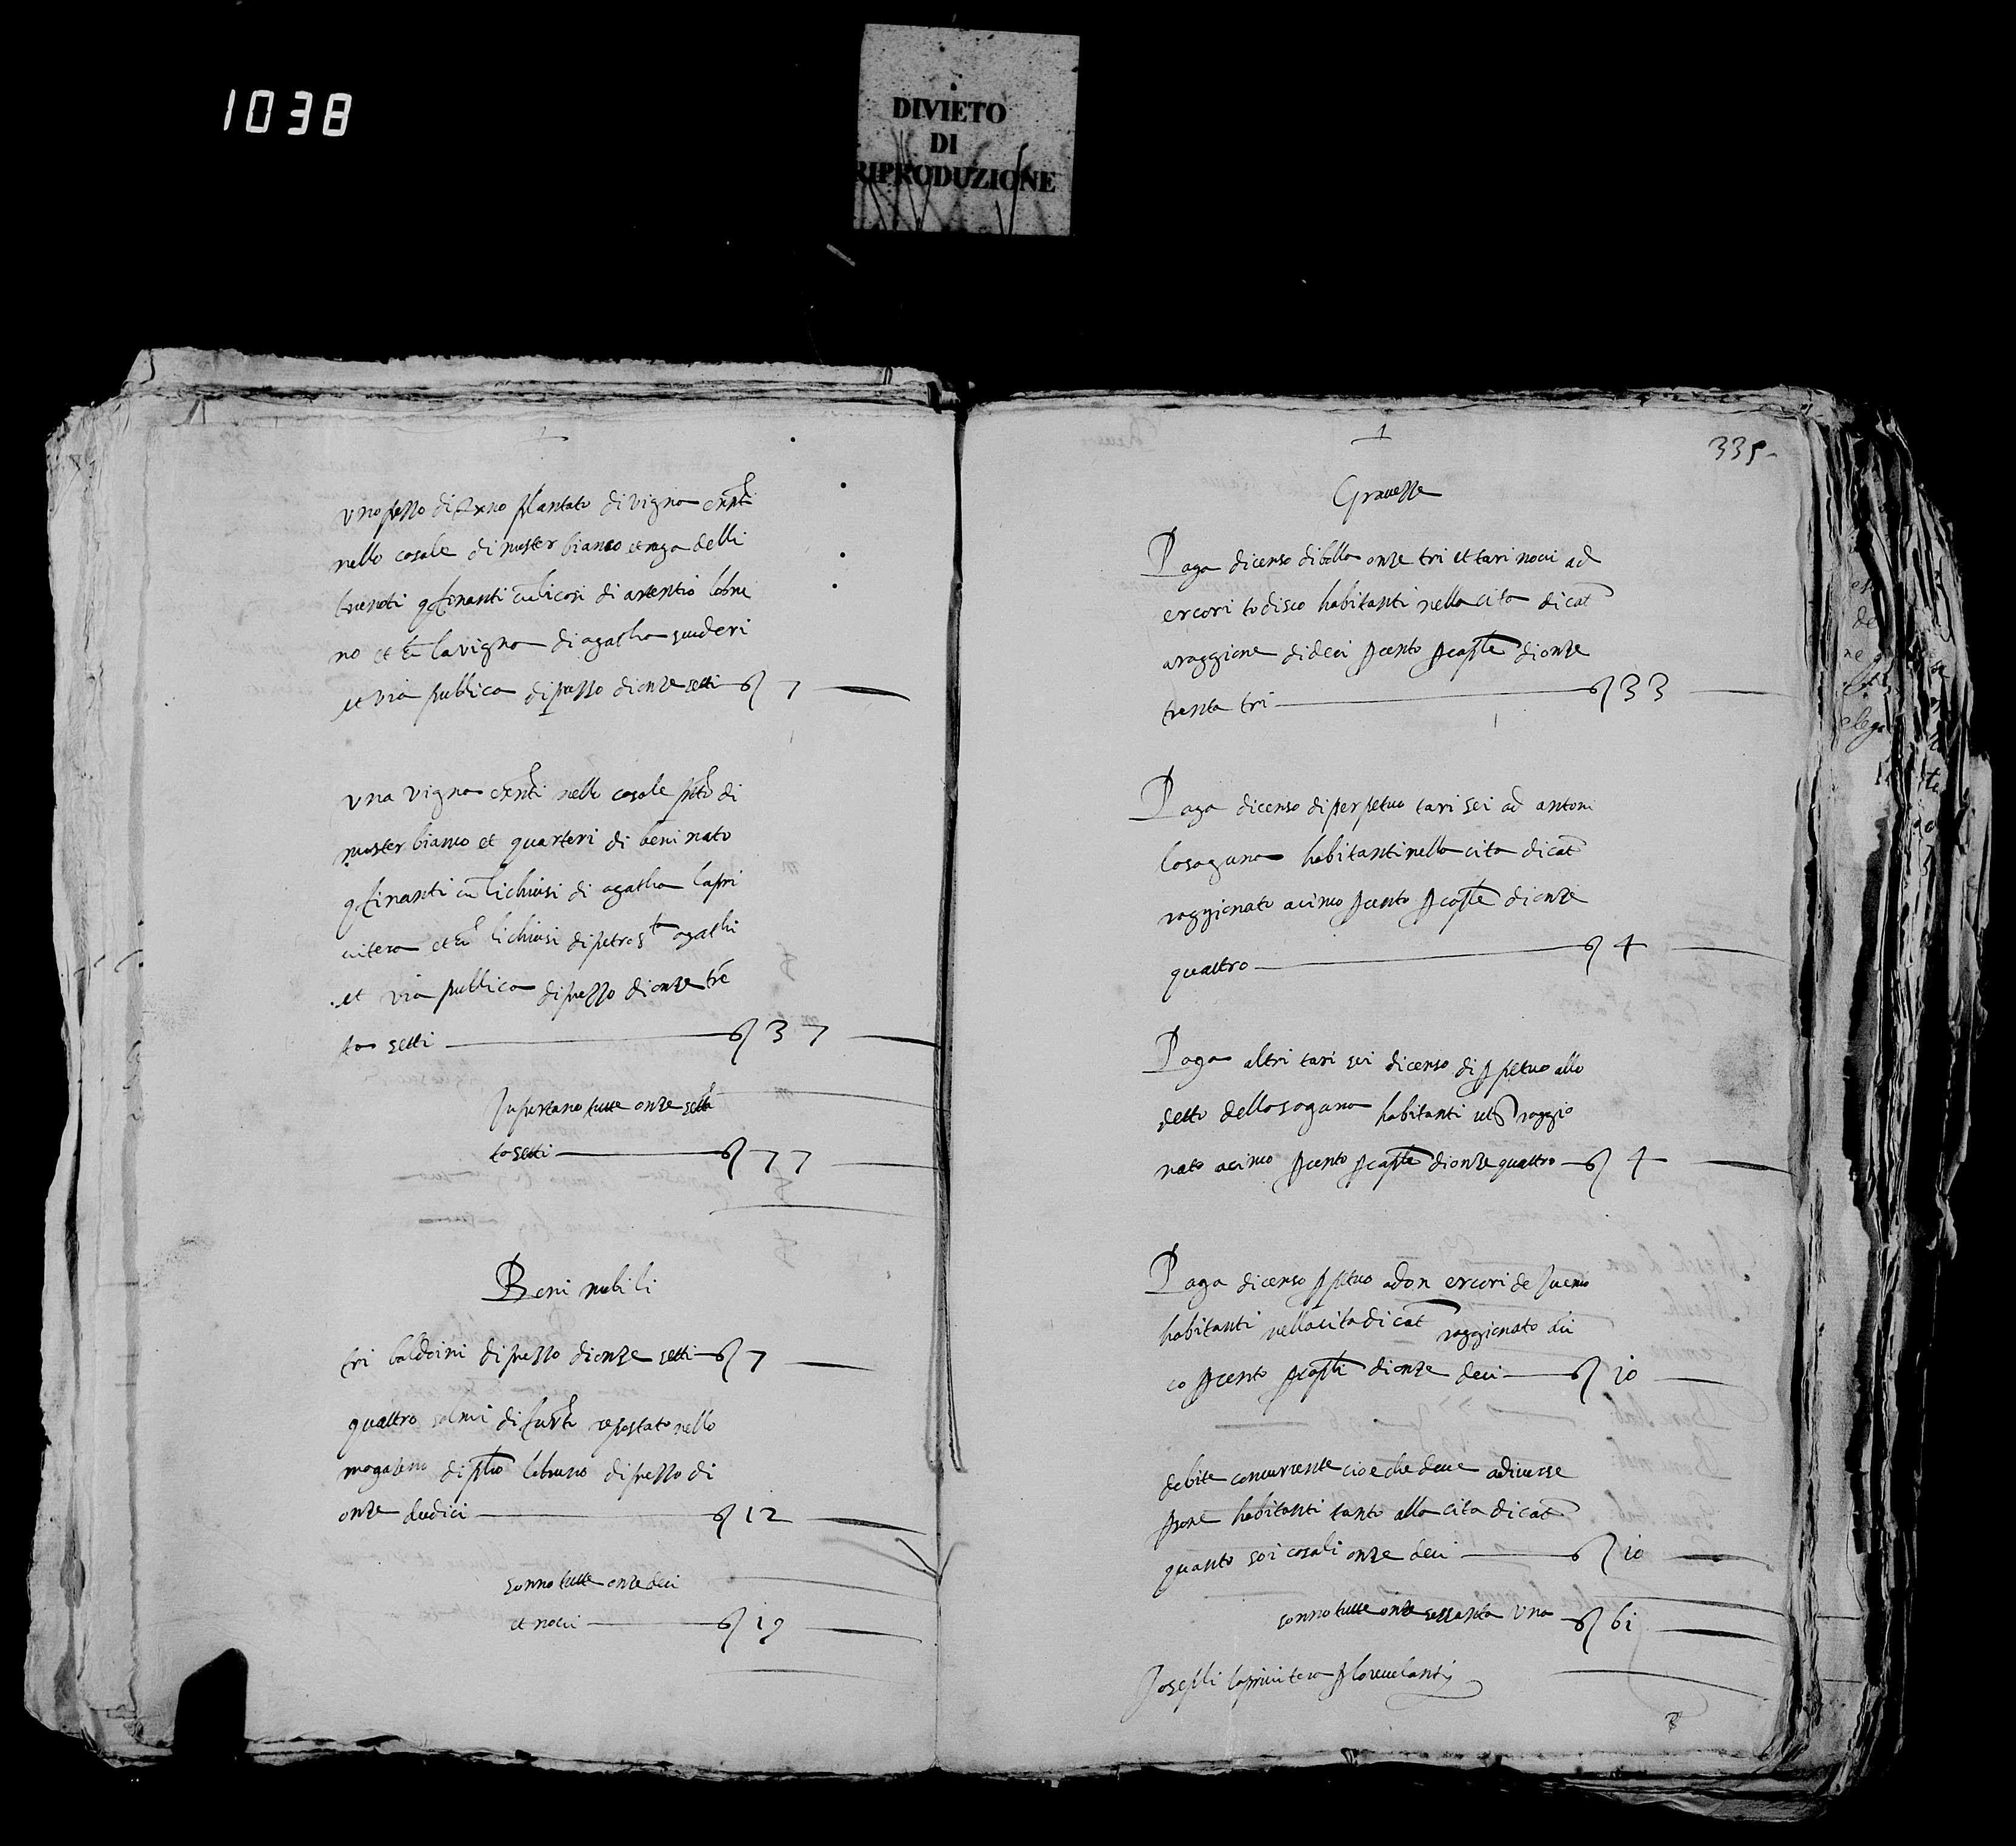 1038
DIVIETO
DI
RIPRODUZIONE
uno pezzo di terreno plantato di vigna existenti
nello casale di muster bianco
confinanti cu li cosi di
no et cu la vigna di agatha
et via publica di prezzo di onze setti — 7
una vigna existenti nello casale ditto di
muster bianco et quarteri di beni nato
confinanti cu li chiusi di agatha lapri
uitera et cu li chiusi di petro s.ta agathi
et via publica di prezzo di onze tre
ta setti — 37
Inportano tutte onze setta
ta setti — 77
Beni mobili
tri baldoini di prezzo di onze setti — 7
quattro salmi di furti repostato nello
magaseno di lobruno di prezzo di
onze dudici — 12
sonno tutte onze deci
et novi — 19
335
Gravezze
Paga di censo di bolla onze tri et tari novi ad
ercori todisco habitanti nella cita di cat
a raggione di deci per cento per capitale di onze
trenta tri — 33
Paga di censo di perpetuo tari sei ad antoni
losagana habitanti nella cita di cat
raggionato a cinco per cento per capitale di onze
quattro — 4
Paga altri tari sei di censo di perpetuo allo
detto de losagana habitanti ut s raggio
nato a cinco per cento per capitale di onze quattro — 4
Paga di censo perpetuo a don ercori de
habitanti nella cita di cat raggionato a ci
co per cento per capitali di onze deci — 10
debite concurrente cioe che deve a diverse
persone habitanti tanto alla cita di cat
quanto soi casali onze deci — 10
sonno tutte onze sessanta una — 61
Joseph laprivitera